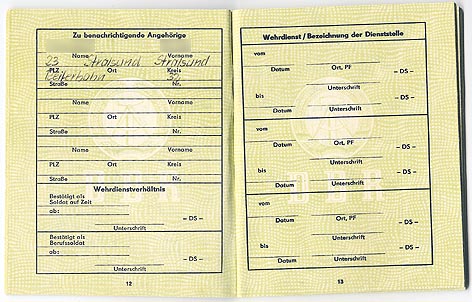 Zu benachrichtigende Angehörige
Name Vorname
23 Stralsund Stralsund
PLZ Ort Kreis
32
Straße Nr.
Name Vorname
PLZ Ort Kreis
Straße Nr.
Name Vorname
PLZ Ort Kreis
Straße Nr.
Wehrdienstverhältnis
Bestätigt als
Soldat auf Zeit
ab:
– DS –
Unterschrift
Bestätigt als
Berufssoldat
ab:
– DS –
Unterschrift
12
Wehrdienst/Bezeichnung der Dienststelle
vom
Datum Ort, PF
– DS –
bis
Datum Unterschrift
vom
Datum Ort, PF
– DS –
bis
Datum Unterschrift
vom
Datum Ort, PF
– DS –
bis
Datum Unterschrift
13
DDR